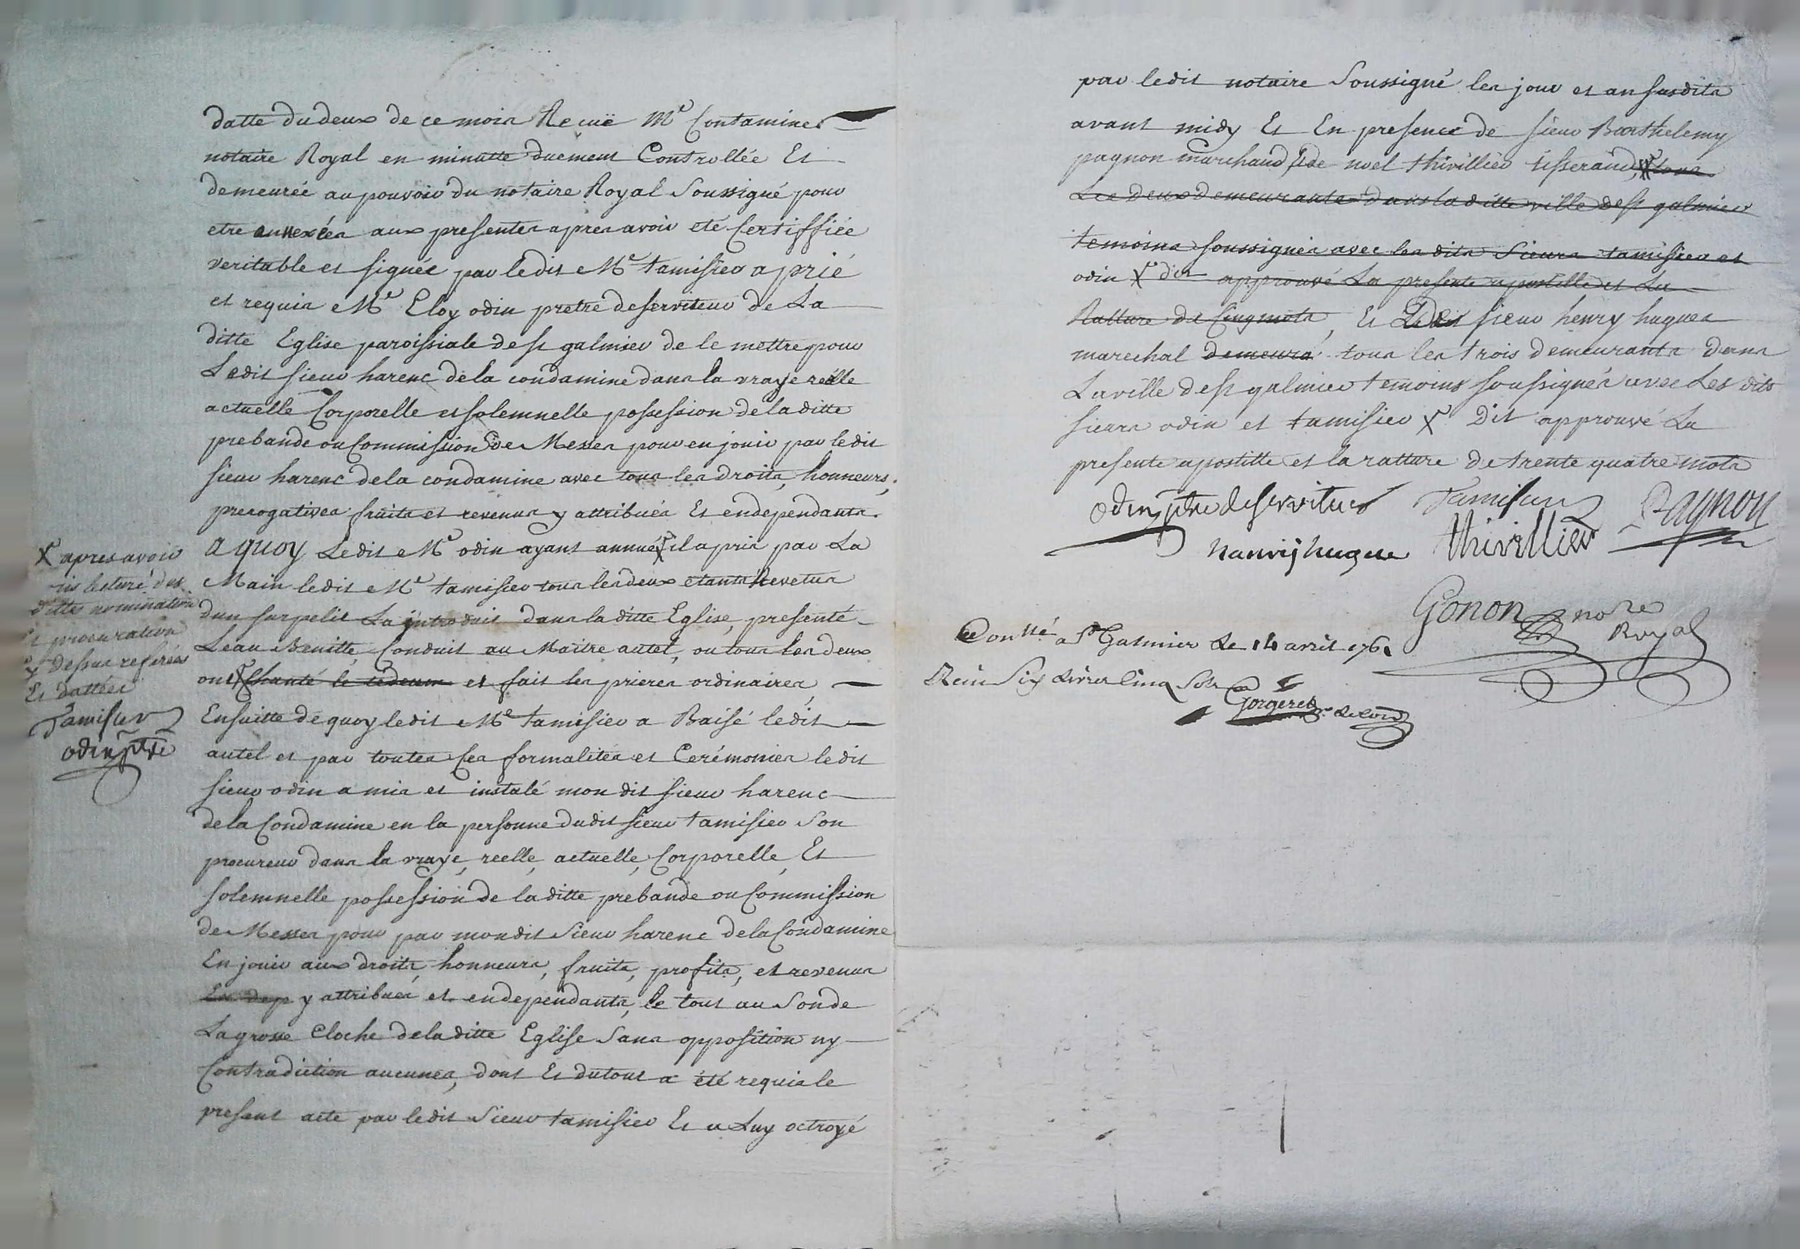 datte du deux de ce mois Recuë Me Contamine
notaire Royal en minutte duement Controllée Et
demeurée au pouvoir du notaire Royal Soussigné pour
etre annexéea aux presentes apres avoir eté Certiffiée
veritable et signée par ledit Me tamisier a prié
et requis Me Eloy odin pretre deserviteur de La
ditte Eglise paroissiale de st galmier de le mettre pour
Ledit sieur harenc de la condamine dans la vraye réelle
actuelle Corporelle et solemnelle possession de la ditte
prebande ou Commission de Messes pour en jouir par ledit
sieur harenc de la condamine avec tous les droits, honneurs,
prerogatives fruits et revenus y attribués Et endependants.
a quoy Ledit Me odin ayant annué X il a pris par La
Main ledit Me tamisier tous les deux etants revetus
dun surpelis La introduit dans la ditte Eglise, presenté
Leau Benitte, Conduit au Maitre autel, ou tous les deux
ont Chanté le tedeum et fait les prieres ordinaires,
Ensuitte de quoy ledit Me tamisier a Baisé ledit
autel et par toutes ces formalités et Cerémonies ledit
sieur odin a mis et instalé mon dit sieur harenc
de la Condamine en la personne dudit sieur tamisier Son
procureur dans la vraye, reelle, actuelle, Corporelle, Et
solemnelle possession de la ditte prebande ou Commission
de Messes pour par mondit Sieur harenc de la Condamine
En jouir aux droits, honneurs, fruits, profits, et revenus
En dep y attribués et endependants, le tout au Son de
La grosse Cloche de la ditte Eglise Sans opposition ny
Contradiction aucunes, dont Et du tout a été requis le
present acte par ledit Sieur tamisier Et a Luy octroyé
X apres avoir
pris lecture des
dittes nomination
Et procuration
cy dessus referées
Et dattées
Tamisier
odin ptre
par ledit notaire Soussigné les jour et an susdits
avant midy Et En presence de sieur Barthelemy
pagnon marchand, de noël thivillier tisserand, X tous
Les deux demeurants dans la ditte ville de st galmier
temoins soussignés avec les dits Sieurs tamisier et
odin X dit approuvé La presente apostille et La
Ratture de Cinq mots, Et Ledit sieur henry hugues
marechal demeura tous les trois demeurants dans
La ville de st galmier temoins soussignés avec Les dits
sieurs odin et tamisier X Dit approuvé La
presente apostille et la ratture de trente quatre mots
odin ptre deserviteur Tamisier Pagnon
hanrij hugue thivillier
Gonon nore
Royal
Conllé a St Galmier Le 14 avril 176
Recu Six Livres Cinq Sols
Gorgeret